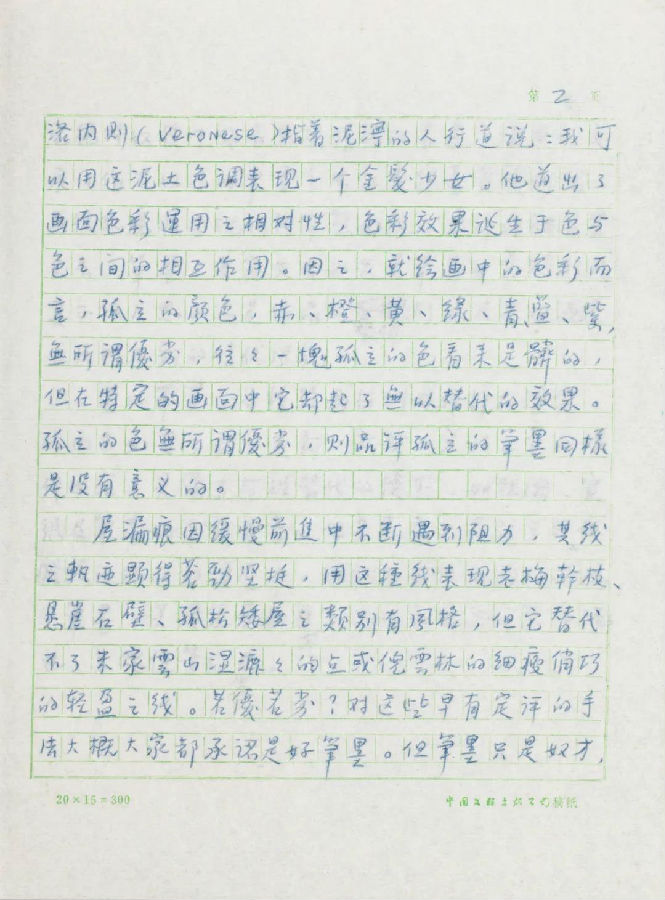 第 2 页
洛内则(Veronese)指着泥濘的人行道说:我可
以用这泥土色调表现一个金髮少女。他道出了
画面色彩運用之相对性,色彩效果诞生于色与
色之间的相互作用。因之,就绘画中的色彩而
言,孤立的颜色,赤、橙、黄、绿、青、蓝、紫,
無所谓優劣,往往一塊孤立的色看来是髒的,
但在特定的画面中它却起了無以替代的效果。
孤立的色無所谓優劣,则品评孤立的筆墨同樣
是没有意义的。
屋漏痕因缓慢前進中不断遇到阻力,其线
之軌迹顕得苍劲坚挺,用这種线表现老梅幹枝、
悬崖石壁、孤松矮屋之類别有風格,但它替代
不了米家雲山湿漉々的点或倪雲林的细瘦俏巧
的轻盈之线。若優若劣?对这些早有定评的手
法大概大家都承认是好筆墨。但筆墨只是奴才,
20×15=300
中国文联出版公司稿纸